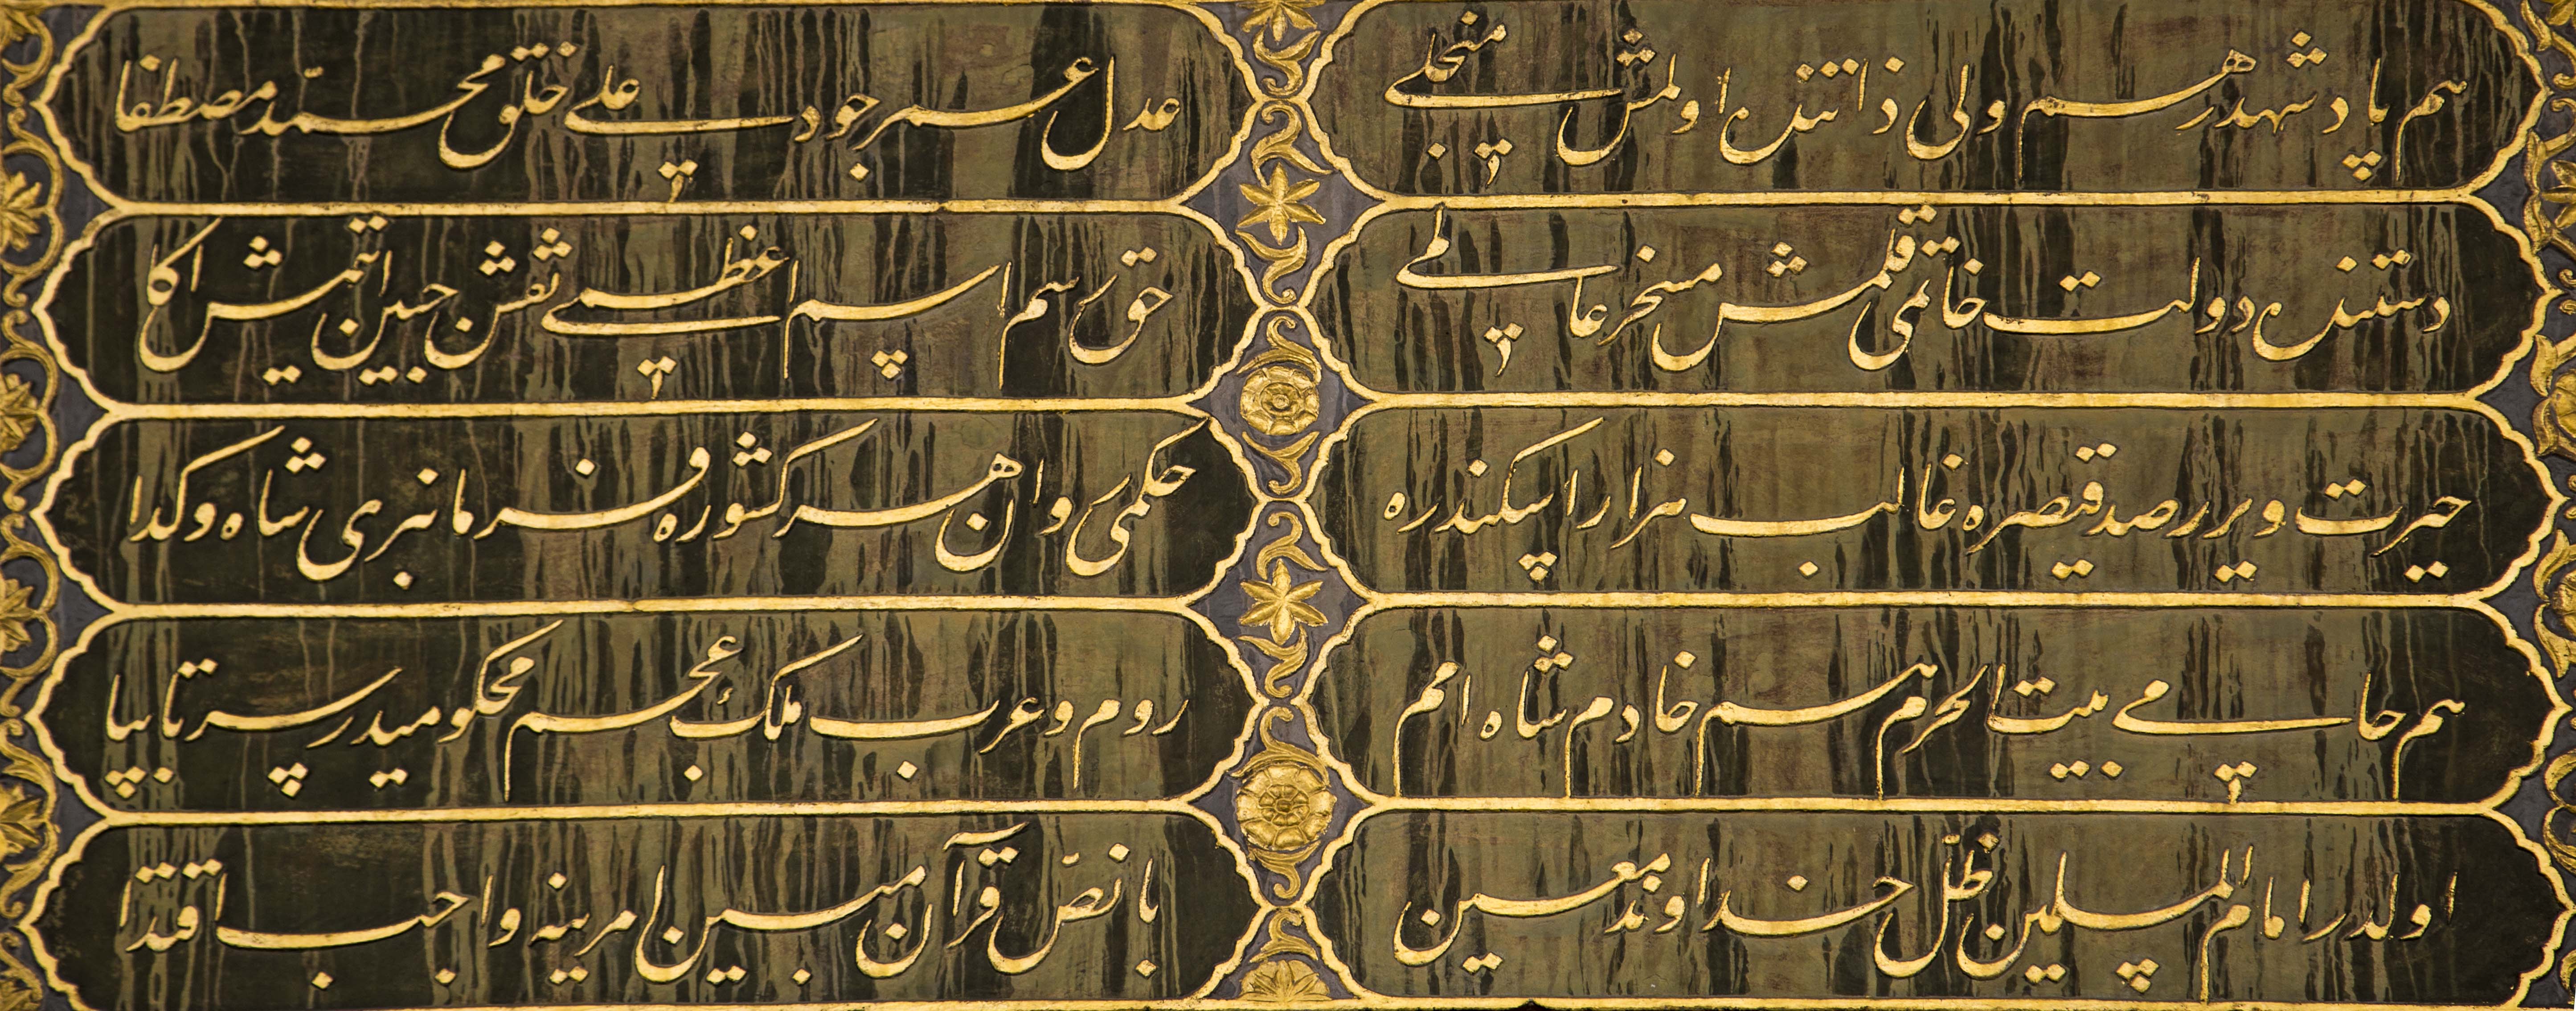 هم پادشهدر هم ولی ذاتنده اولمش منجلی
عدل عمر جود علی خلق محمد مصطفا
دستنده دولت خاتمی قلمش مسخر عالمی
حق رسم اسم اعظمی نقش جبین ایتمش اکا
حیرت ویرر صد قیصره غالب هزار اسکندره
حکمی روان هر کشوره فرمانبری شاه و کدا
هم حامی بیت الحرم هم خادم شاه امم
روم و عرب ملك عجم محکومیدر سر تا بپا
اولدر امام المسلمین ظل خداوند معین
با نص قرآن مبین امرینه واجب اقتدا